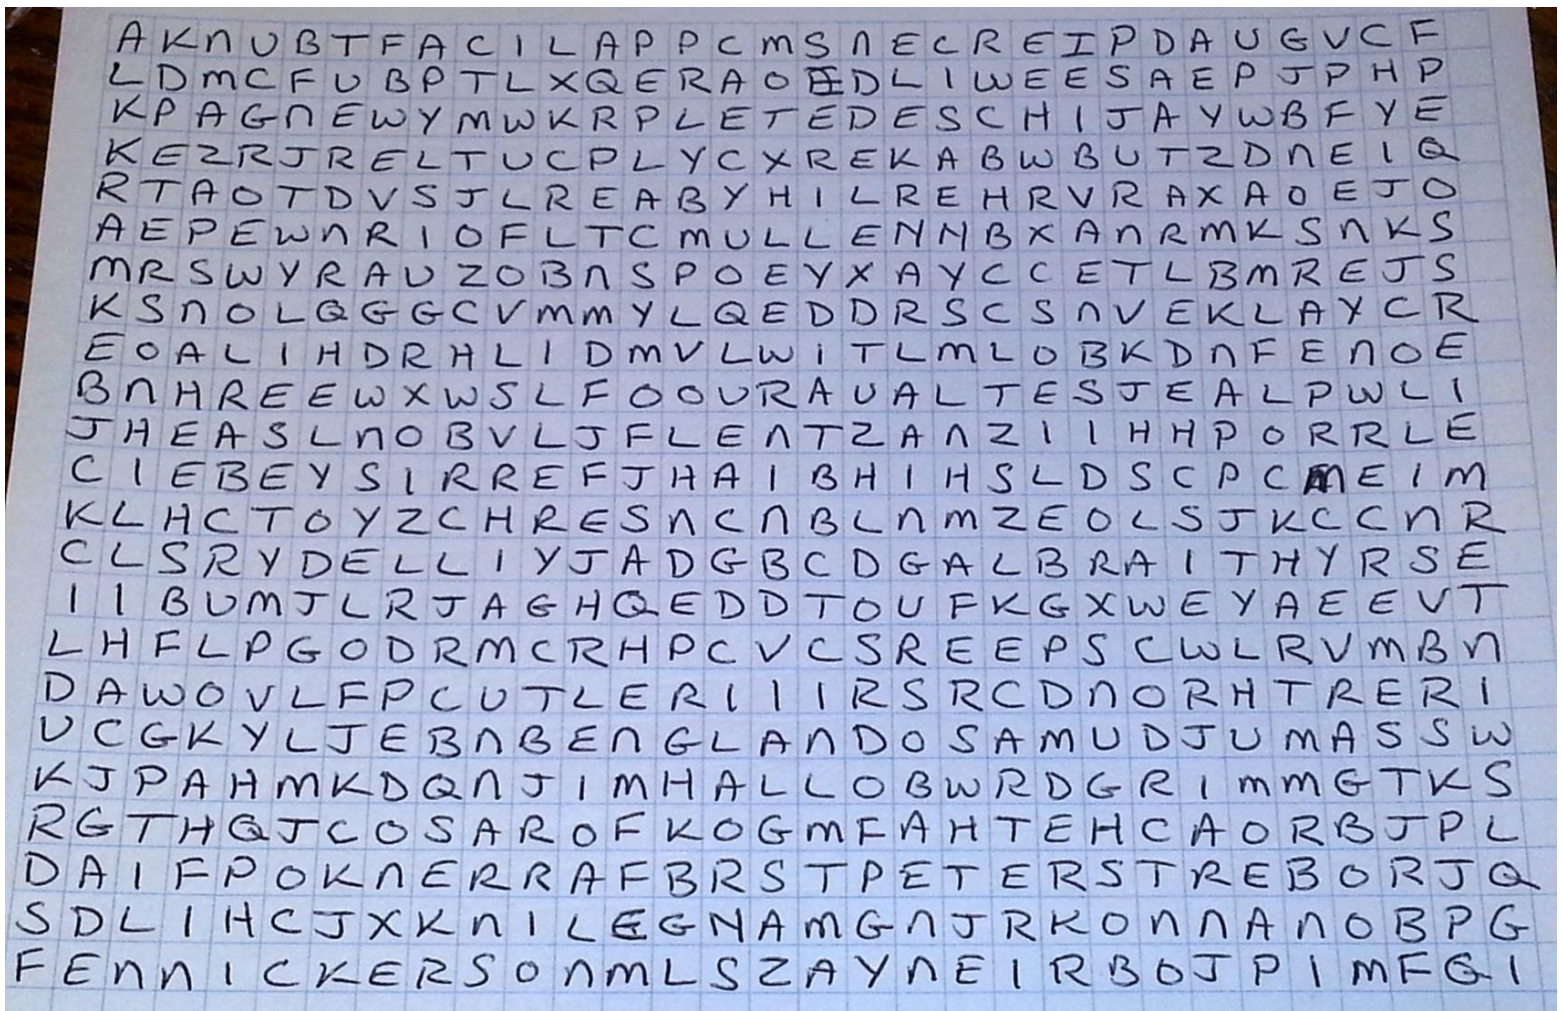 A K N U B T F A C I L A P P C M S N E C R E I P D A U G V C F
L D M C F U B P T L X Q E R A O E D L I W E E S A E P J P H P
K P A G N E W Y M W K R P L E T E D E S C H I J A Y W B F Y E
K E Z R J R E L T U C P L Y C X R E K A B W B U T Z D N E I Q
R T A O T D V S J L R E A B Y H I L R E H R V R A X A O E J O
A E P E W N R I O F L T C M U L L E N N B X A N R M K S N K S
M R S W Y R A U Z O B N S P O E Y X A Y C C E T L B M R E J S
K S N O L Q G G C V M M Y L Q E D D R S C S N V E K L A Y C R
E O A L I H D R H L I D M V L W I T L M L O B K D N F E N O E
B N H R E E W X W S L F O O U R A U A L T E S J E A L P W L I
J H E A S L N O B V L J F L E N T Z A N Z I I H H P O R R L E
C I E B E Y S I R R E F J H A I B H I H S L D S C P C M E I M
K L H C T O Y Z C H R E S N C N B L N M Z E O L S J K C C N R
C L S R Y D E L L I Y J A D G B C D G A L B R A I T H Y R S E
I I B U M J L R J A G H Q E D D T O U F K G X W E Y A E E V T
L H F L P G O D R M C R H P C V C S R E E P S C W L R V M B N
D A W O V L F P C U T L E R I I I R S R C D N O R H T R E R I
U C G K Y L J E B N B E N G L A N D O S A M U D J U M A S S W
K J P A H M K D Q N J I M H A L L O B W R D G R I M M G T K S
R G T H Q J C O S A R O F K O G M F A H T E H C A O R B J P L
D A I F P O K N E R R A F B R S T P E T E R S T R E B O R J Q
S D L I H C J X K N I L E G N A M G N J R K O N N A N O B P G
F E N N I C K E R S O N M L S Z A Y N E I R B O J P I M F G I